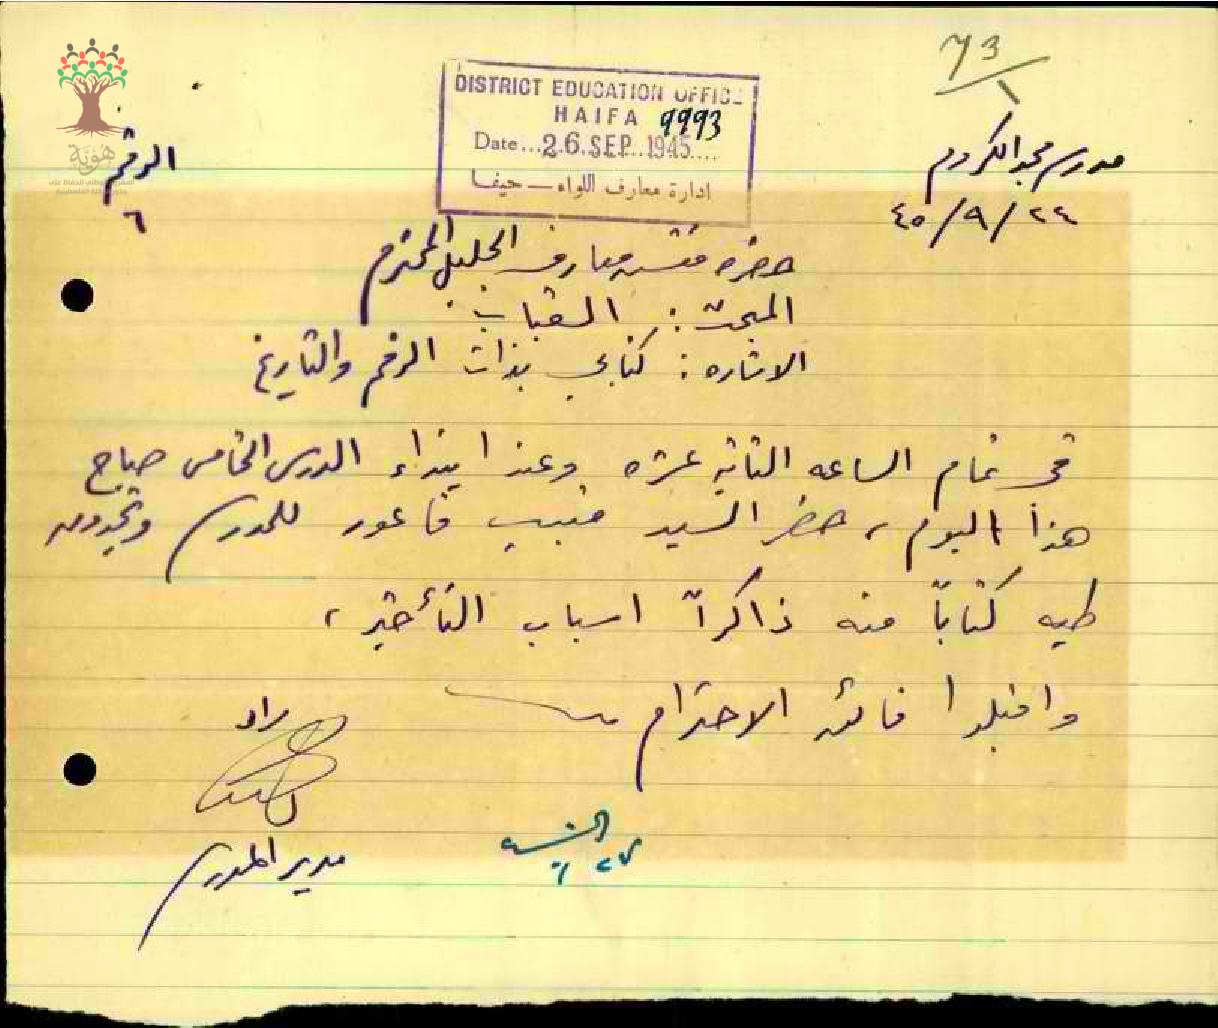 73
DISTRICT EDUCATION OFFICE
HAIFA 9993
Date... 26. SEP. 1945....
ادارة معارف اللواء — حيفا
هوية
مدرسة مجد الكروم
٢٤/٩/٤٥
الرقم
٦
حضرة مفتش معارف الجليل المحترم
المبحث: الغياب
الاشاره: كتابي بذات الرقم والتاريخ
في تمام الساعه الثانيه عشره وعند ابتداء الدرس الخامس صباح
هذا اليوم، حضر السيد منيب فاعور للمدرسة وتجدون
طيه كتاباً منه ذاكراً اسباب التأخير،
واقبلوا فائق الاحترام
مدير المدرسة